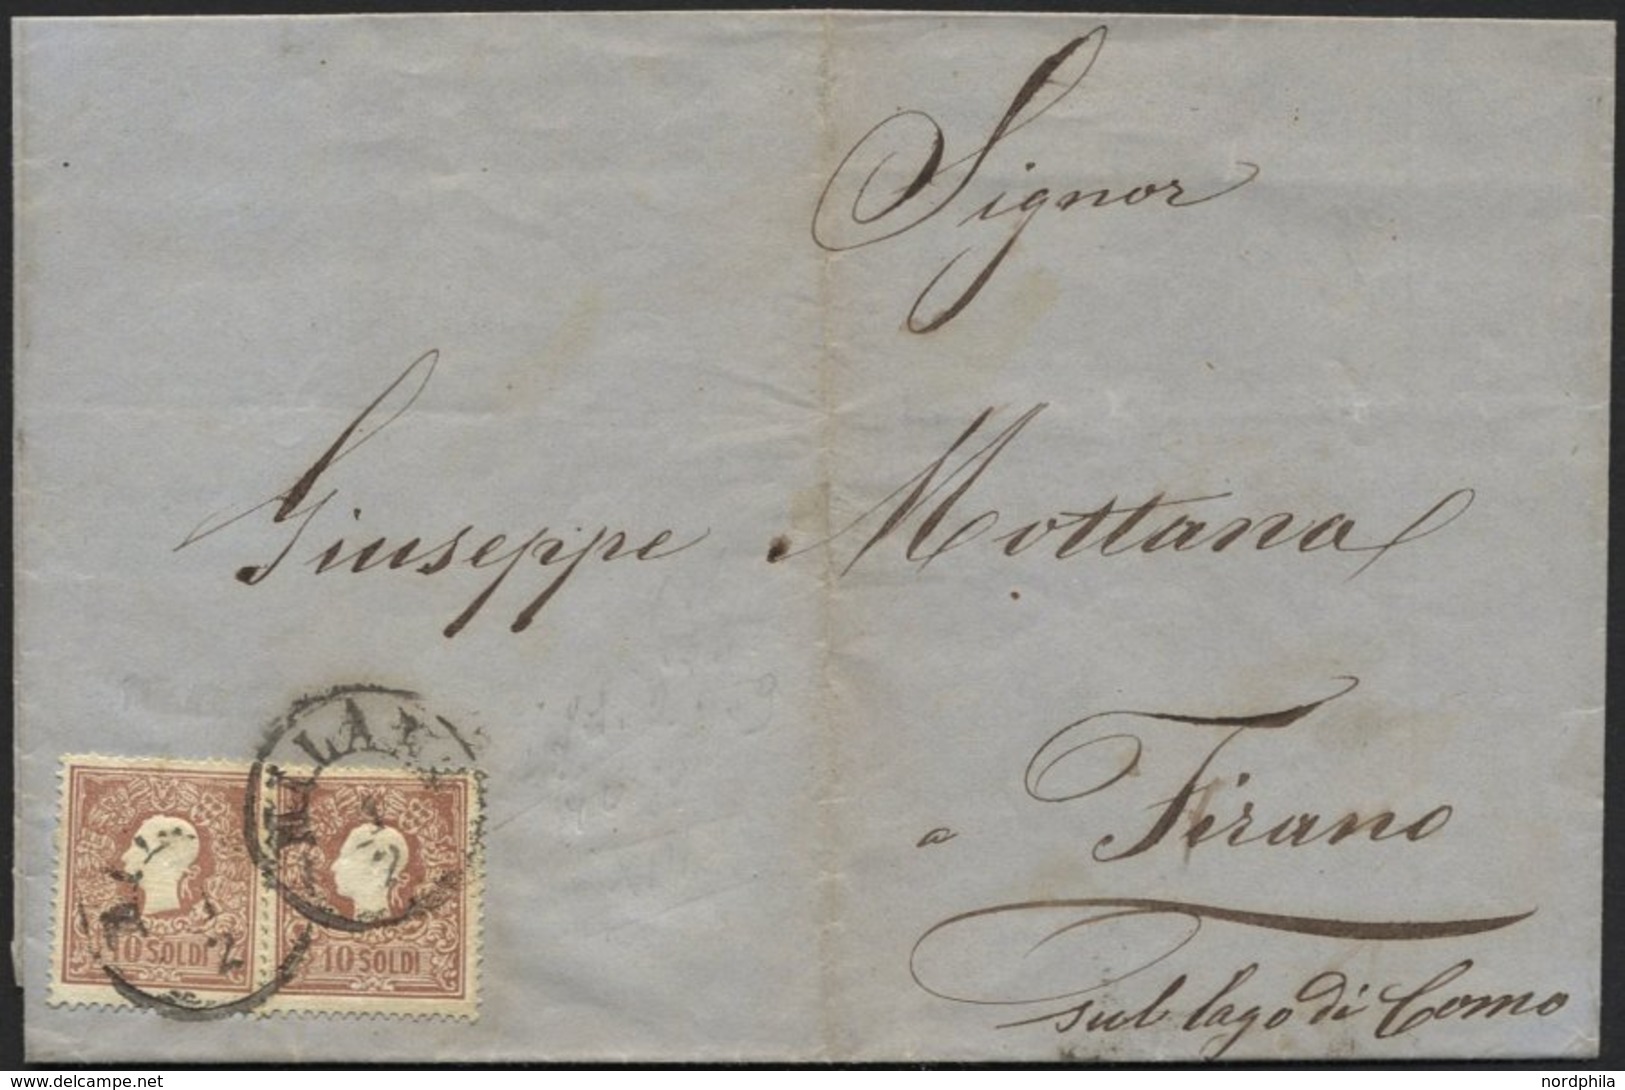 Signor
Giuseppe Mottana
a Tirano
sul lago di Como
MILANO
10 SOLDI
10 SOLDI
delcampe.net
nordphila